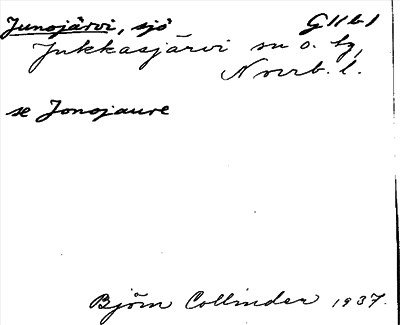 Junojärvi, sjö G11b1
Jukkasjärvi sn o. tg,
Norrb. l.
se Jonojaure
Björn Collinder 1937.